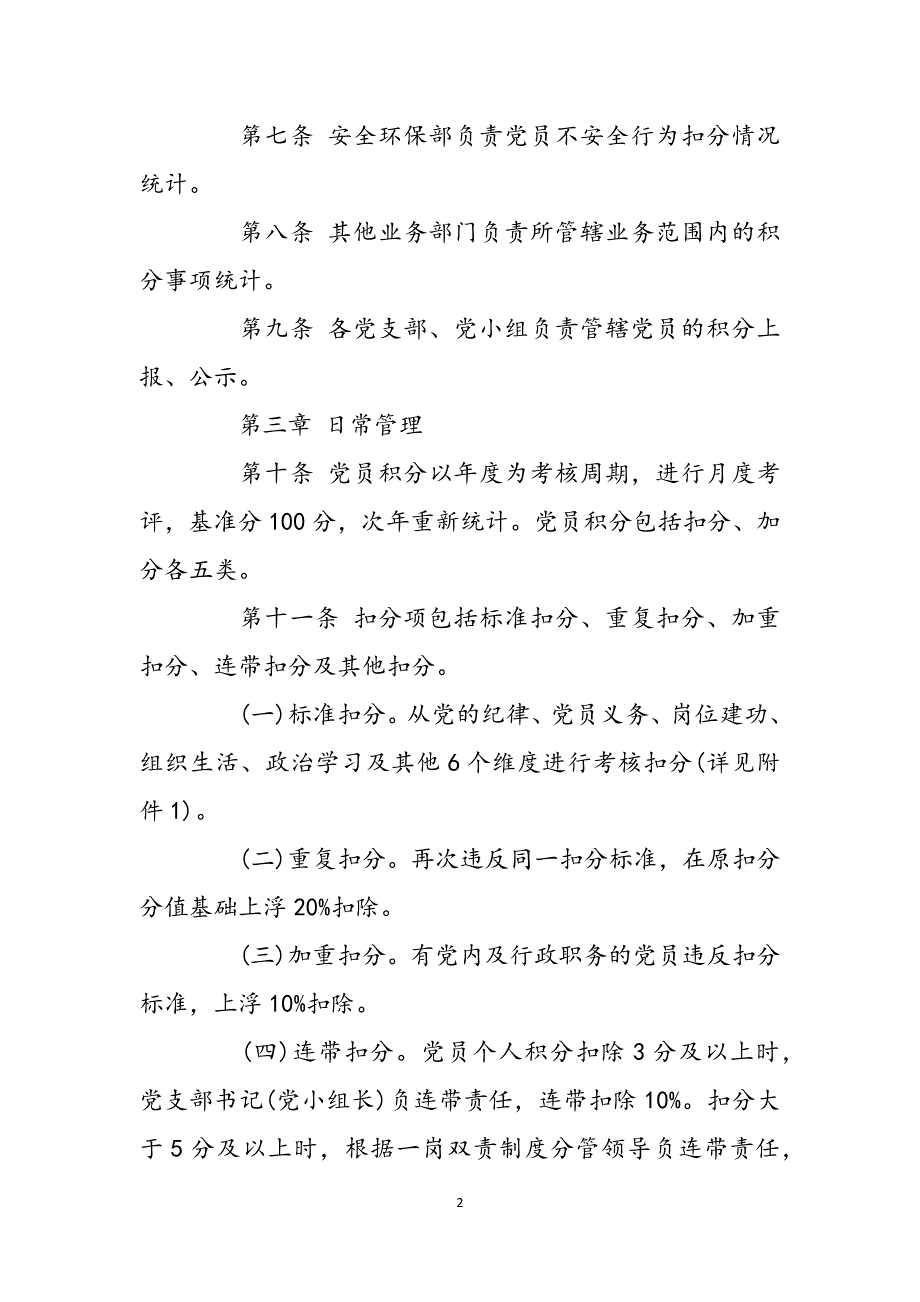 第七条 安全环保部负责党员不安全行为扣分情况
统计。
第八条 其他业务部门负责所管辖业务范围内的积
分事项统计。
第九条 各党支部、党小组负责管辖党员的积分上
报、公示。
第三章 日常管理
第十条 党员积分以年度为考核周期，进行月度考
评，基准分100分，次年重新统计。党员积分包括扣分、加
分各五类。
第十一条 扣分项包括标准扣分、重复扣分、加重
扣分、连带扣分及其他扣分。
(一)标准扣分。从党的纪律、党员义务、岗位建功、
组织生活、政治学习及其他6个维度进行考核扣分(详见附
件1)。
(二)重复扣分。再次违反同一扣分标准，在原扣分
分值基础上浮20%扣除。
(三)加重扣分。有党内及行政职务的党员违反扣分
标准，上浮10%扣除。
(四)连带扣分。党员个人积分扣除3分及以上时，
党支部书记(党小组长)负连带责任，连带扣除10%。扣分大
于5分及以上时，根据一岗双责制度分管领导负连带责任，
2